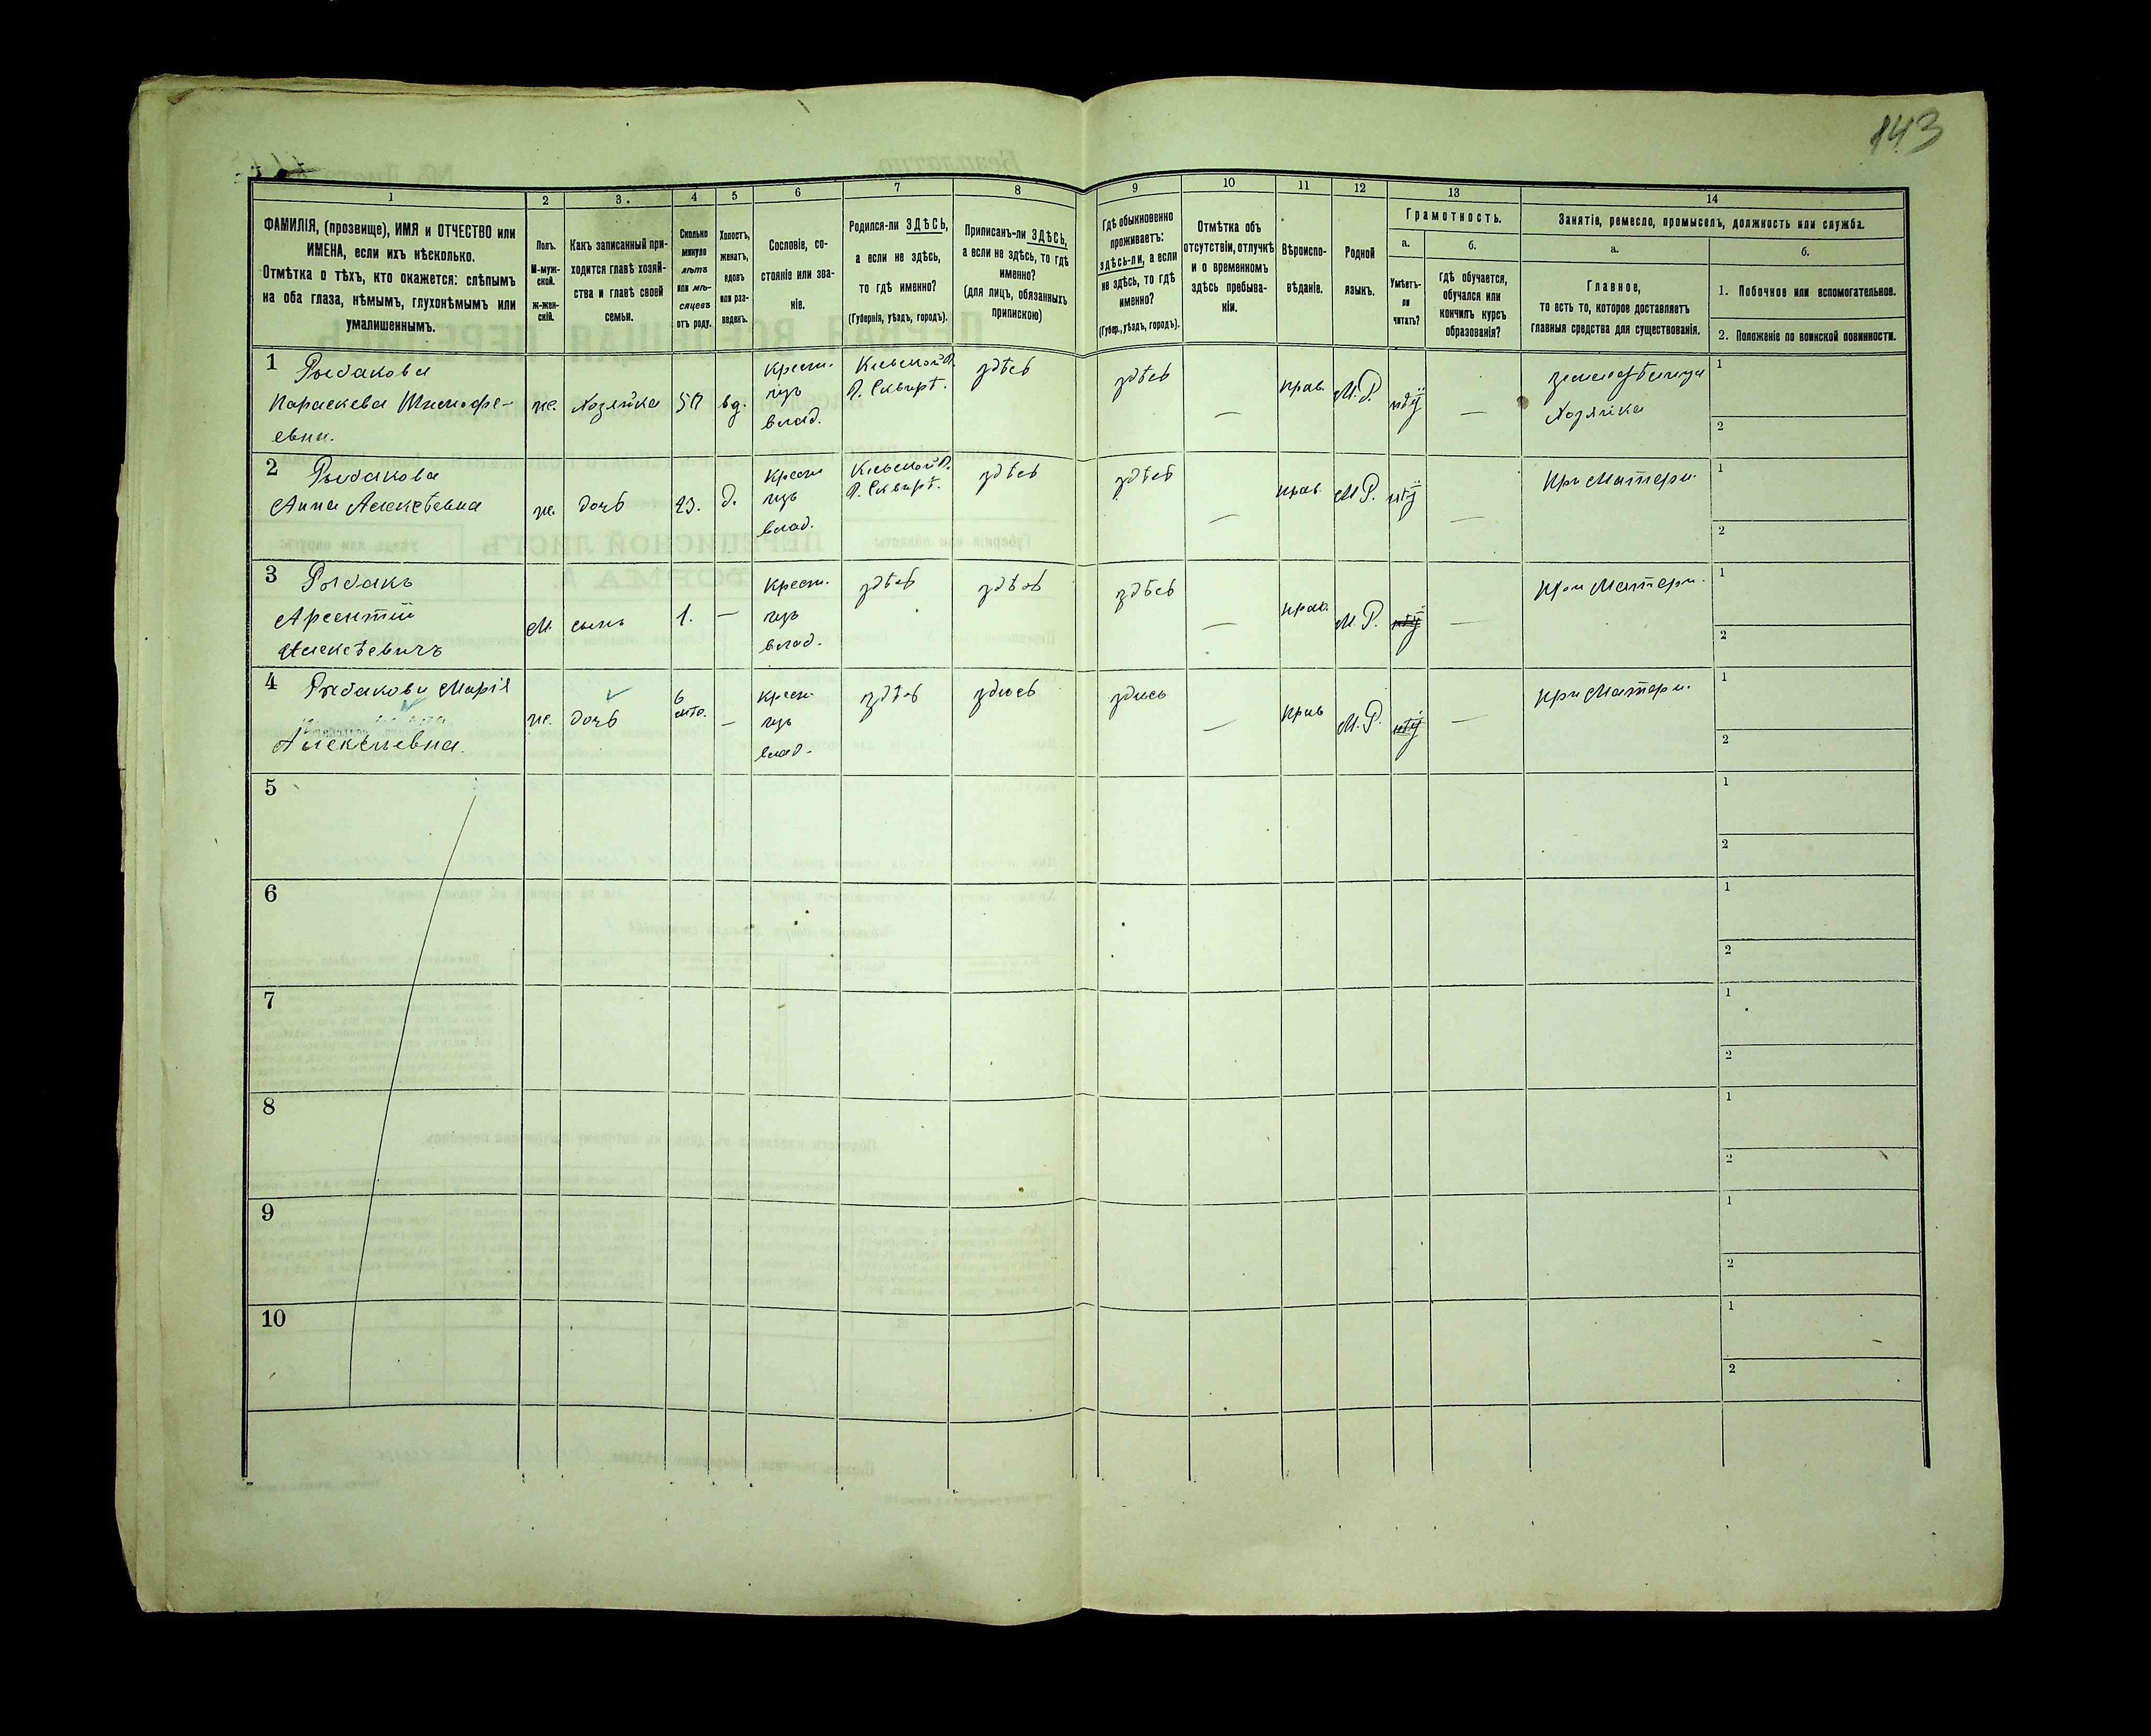 143
1 2 3. 4 5 6 7 8 9 10 11 12 13 14
ФАМИЛІЯ, (прозвище), ИМЯ и ОТЧЕСТВО или
ИМЕНА, если ихъ нѣсколько.
Отмѣтка о тѣхъ, кто окажется: слѣпымъ
на оба глаза, нѣмымъ, глухонѣмымъ или
умалишеннымъ.
Полъ.
М-муж-
ской.
ж-жен-
скій.
Какъ записанный при-
ходится главѣ хозяй-
ства и главѣ своей
семьи.
Сколько
минуло
лѣтъ
или мѣ-
сяцевъ
отъ роду.
Холостъ,
женатъ,
вдовъ
или раз-
веденъ.
Сословіе, со-
стояніе или зва-
ніе.
Родился-ли ЗДѢСЬ,
а если не здѣсь,
то гдѣ именно?
(Губернія, уѣздъ, городъ).
Приписанъ-ли ЗДѢСЬ,
а если не здѣсь, то гдѣ
именно?
(для лицъ, обязанныхъ
припискою)
Гдѣ обыкновенно
проживаетъ:
здѣсь-ли, а если
не здѣсь, то гдѣ
именно?
(Губер., уѣздъ, городъ).
Отмѣтка объ
отсутствіи, отлучкѣ
и о временномъ
здѣсь пребыва-
ніи.
Вѣроиспо-
вѣданіе.
Родной
языкъ.
Грамотность.
а.
Умѣетъ-
ли
читать?
б.
Гдѣ обучается,
обучался или
кончилъ курсъ
образованія?
Занятіе, ремесло, промыселъ, должность или служба.
а.
Главное,
то есть то, которое доставляетъ
главныя средства для существованія.
б.
1. Побочное или вспомогательное.
2. Положеніе по воинской повинности.
1 Рыбакова
Параскева
ж.
Хозяйка
50
вд.
крест.
изъ
влад.
Кіевской Г.
Сквир.
здѣсь
здѣсь
—
прав.
М. Р.
—
Хозяйка
1
2
2 Рыбакова
Анна Алексѣевна
ж.
дочь
23.
д.
крест
изъ
влад.
Кіевской Г.
Сквир.
здѣсь
здѣсь
—
прав.
М. Р.
—
При Матери.
1
2
3 Рыбакъ
Арсентій
Алексѣевичъ
М
сынъ
1.
—
крест.
изъ
влад.
здѣсь
здѣсь
здѣсь
—
прав.
М. Р.
—
При Матери.
1
2
4 Рыбакова Марія
Алексѣевна.
ж.
дочь
6
—
крест.
изъ
влад.
здѣсь
здѣсь
здѣсь
—
прав
М. Р.
—
При Матери.
1
2
5
1
2
6
1
2
7
1
2
8
1
2
9
1
2
10
1
2